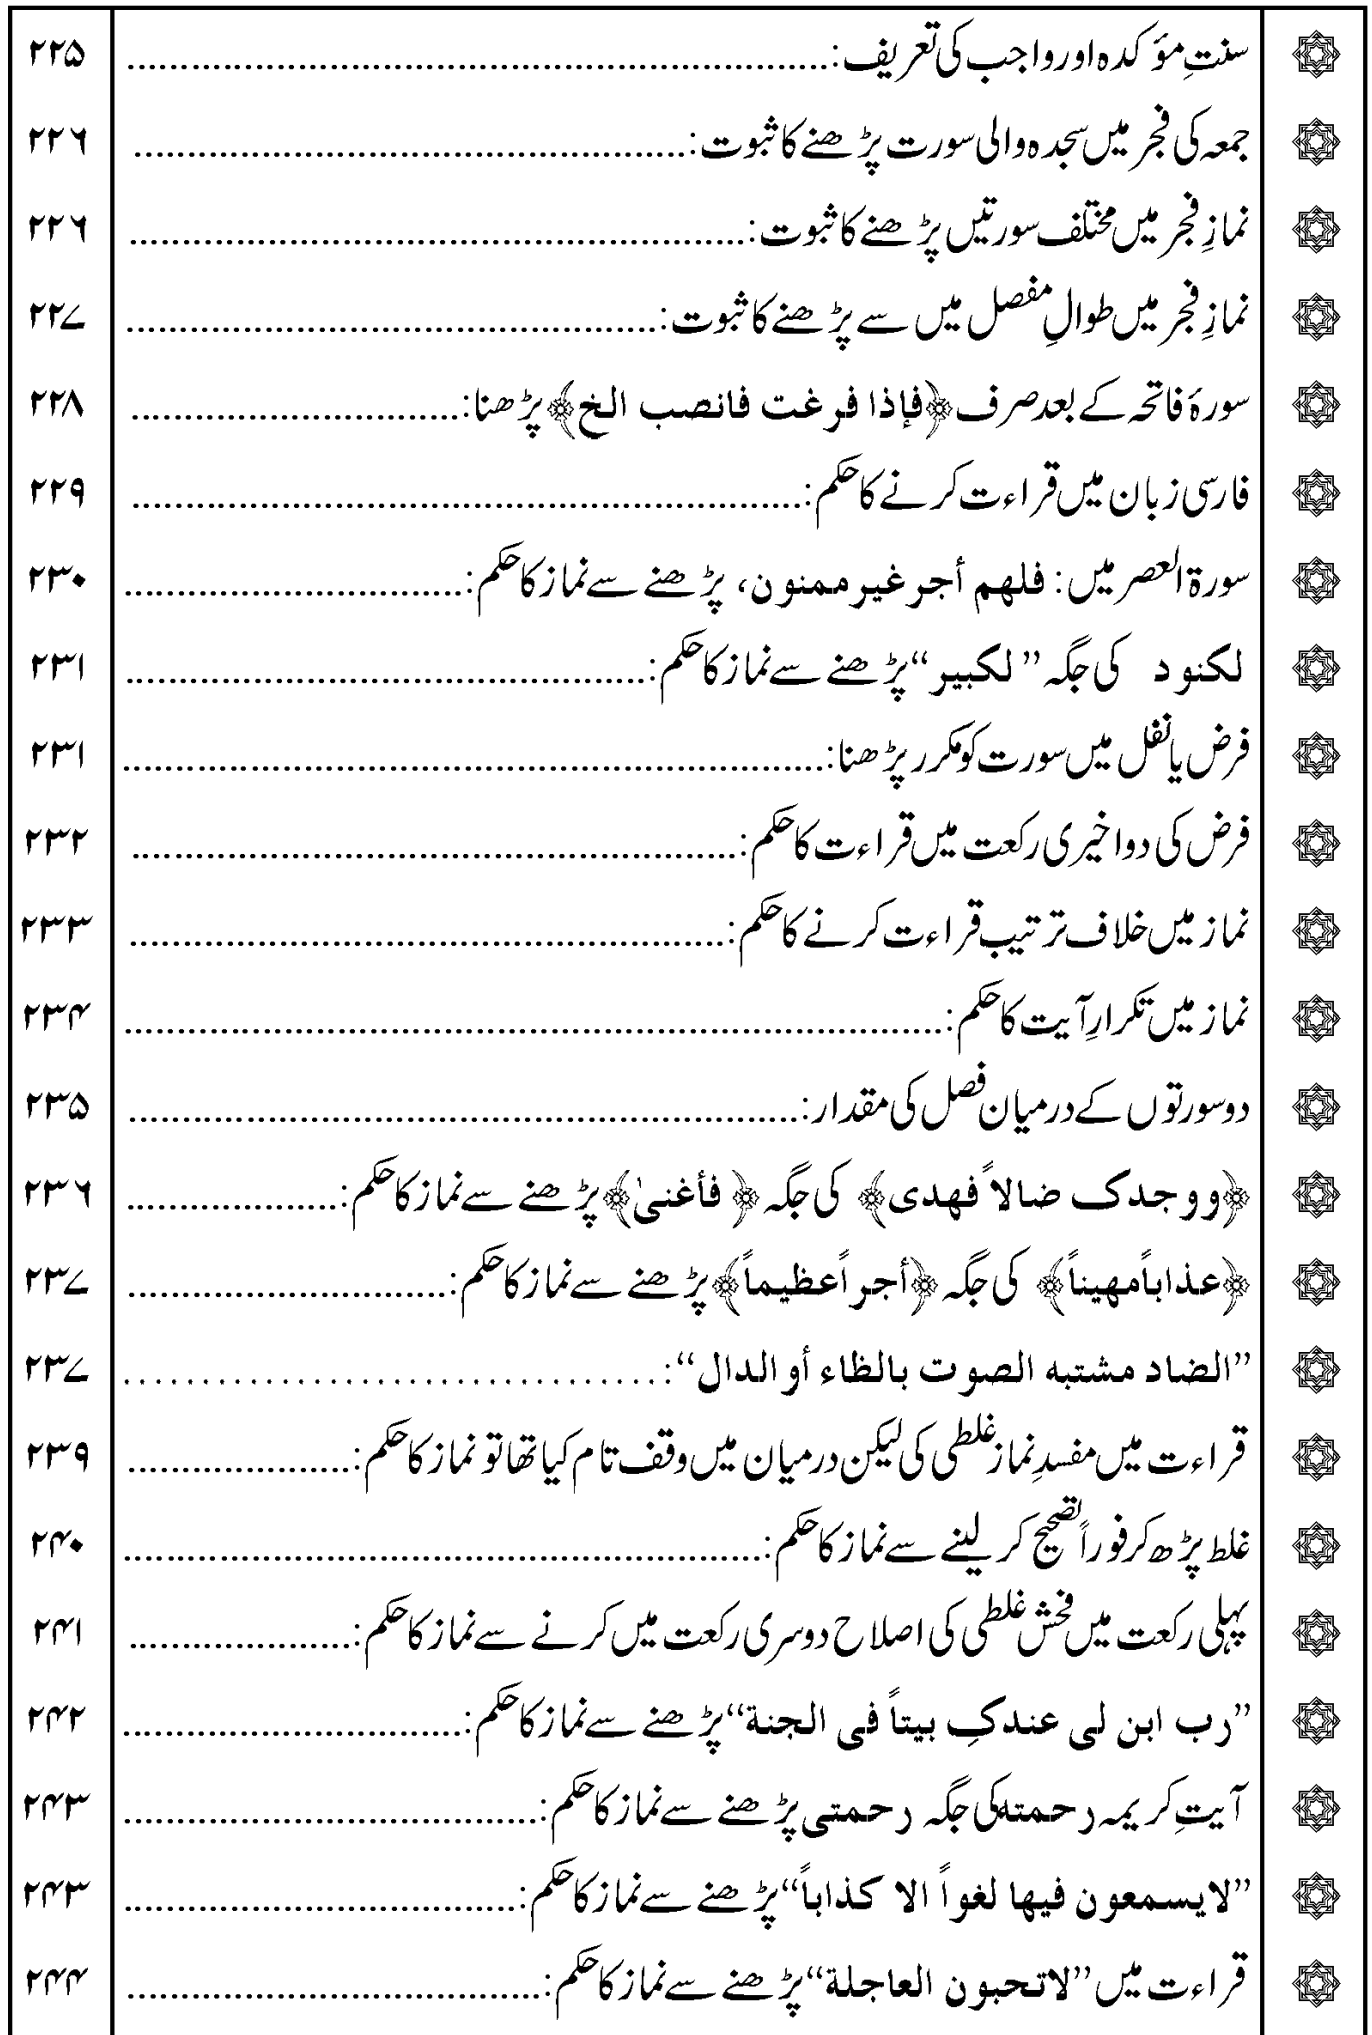 سنتِ مؤکدہ اور واجب کی تعریف:........ ۲۲۵
جمعہ کی فجر میں سجدہ والی سورت پڑھنے کا ثبوت:........ ۲۲۶
نمازِ فجر میں مختلف سورتیں پڑھنے کا ثبوت:........ ۲۲۶
نمازِ فجر میں طوالِ مفصل میں سے پڑھنے کا ثبوت:........ ۲۲۷
سورۂ فاتحہ کے بعد صرف ﴿فإذا فرغت فانصب الخ﴾ پڑھنا:........ ۲۲۸
فارسی زبان میں قراءت کرنے کا حکم:........ ۲۲۹
سورۃ العصر میں: فلهم أجر غير ممنون، پڑھنے سے نماز کا حکم:........ ۲۳۰
لکنود کی جگہ ”لکبیر“ پڑھنے سے نماز کا حکم:........ ۲۳۱
فرض یا نفل میں سورت کو مکرر پڑھنا:........ ۲۳۱
فرض کی دو اخیری رکعت میں قراءت کا حکم:........ ۲۳۲
نماز میں خلاف ترتیب قراءت کرنے کا حکم:........ ۲۳۳
نماز میں تکرارِ آیت کا حکم:........ ۲۳۴
دو سورتوں کے درمیان فصل کی مقدار:........ ۲۳۵
﴿ووجدک ضالاً فهدی﴾ کی جگہ ﴿فأغنیٰ﴾ پڑھنے سے نماز کا حکم:........ ۲۳۶
﴿عذاباً مهيناً﴾ کی جگہ ﴿أجراً عظيماً﴾ پڑھنے سے نماز کا حکم:........ ۲۳۷
”الضاد مشتبه الصوت بالظاء أو الدال“:........ ۲۳۷
قراءت میں مفسدِ نماز غلطی کی لیکن درمیان میں وقف تام کیا تھا تو نماز کا حکم:........ ۲۳۹
غلط پڑھ کر فوراً تصحیح کر لینے سے نماز کا حکم:........ ۲۴۰
پہلی رکعت میں فحش غلطی کی اصلاح دوسری رکعت میں کرنے سے نماز کا حکم:........ ۲۴۱
”رب ابن لی عندکِ بیتاً فی الجنة“ پڑھنے سے نماز کا حکم:........ ۲۴۲
آیتِ کریمہ رحمته کی جگہ رحمتی پڑھنے سے نماز کا حکم:........ ۲۴۳
”لا یسمعون فیها لغواً الا کذاباً“ پڑھنے سے نماز کا حکم:........ ۲۴۳
قراءت میں ”لاتحبون العاجلة“ پڑھنے سے نماز کا حکم:........ ۲۴۴